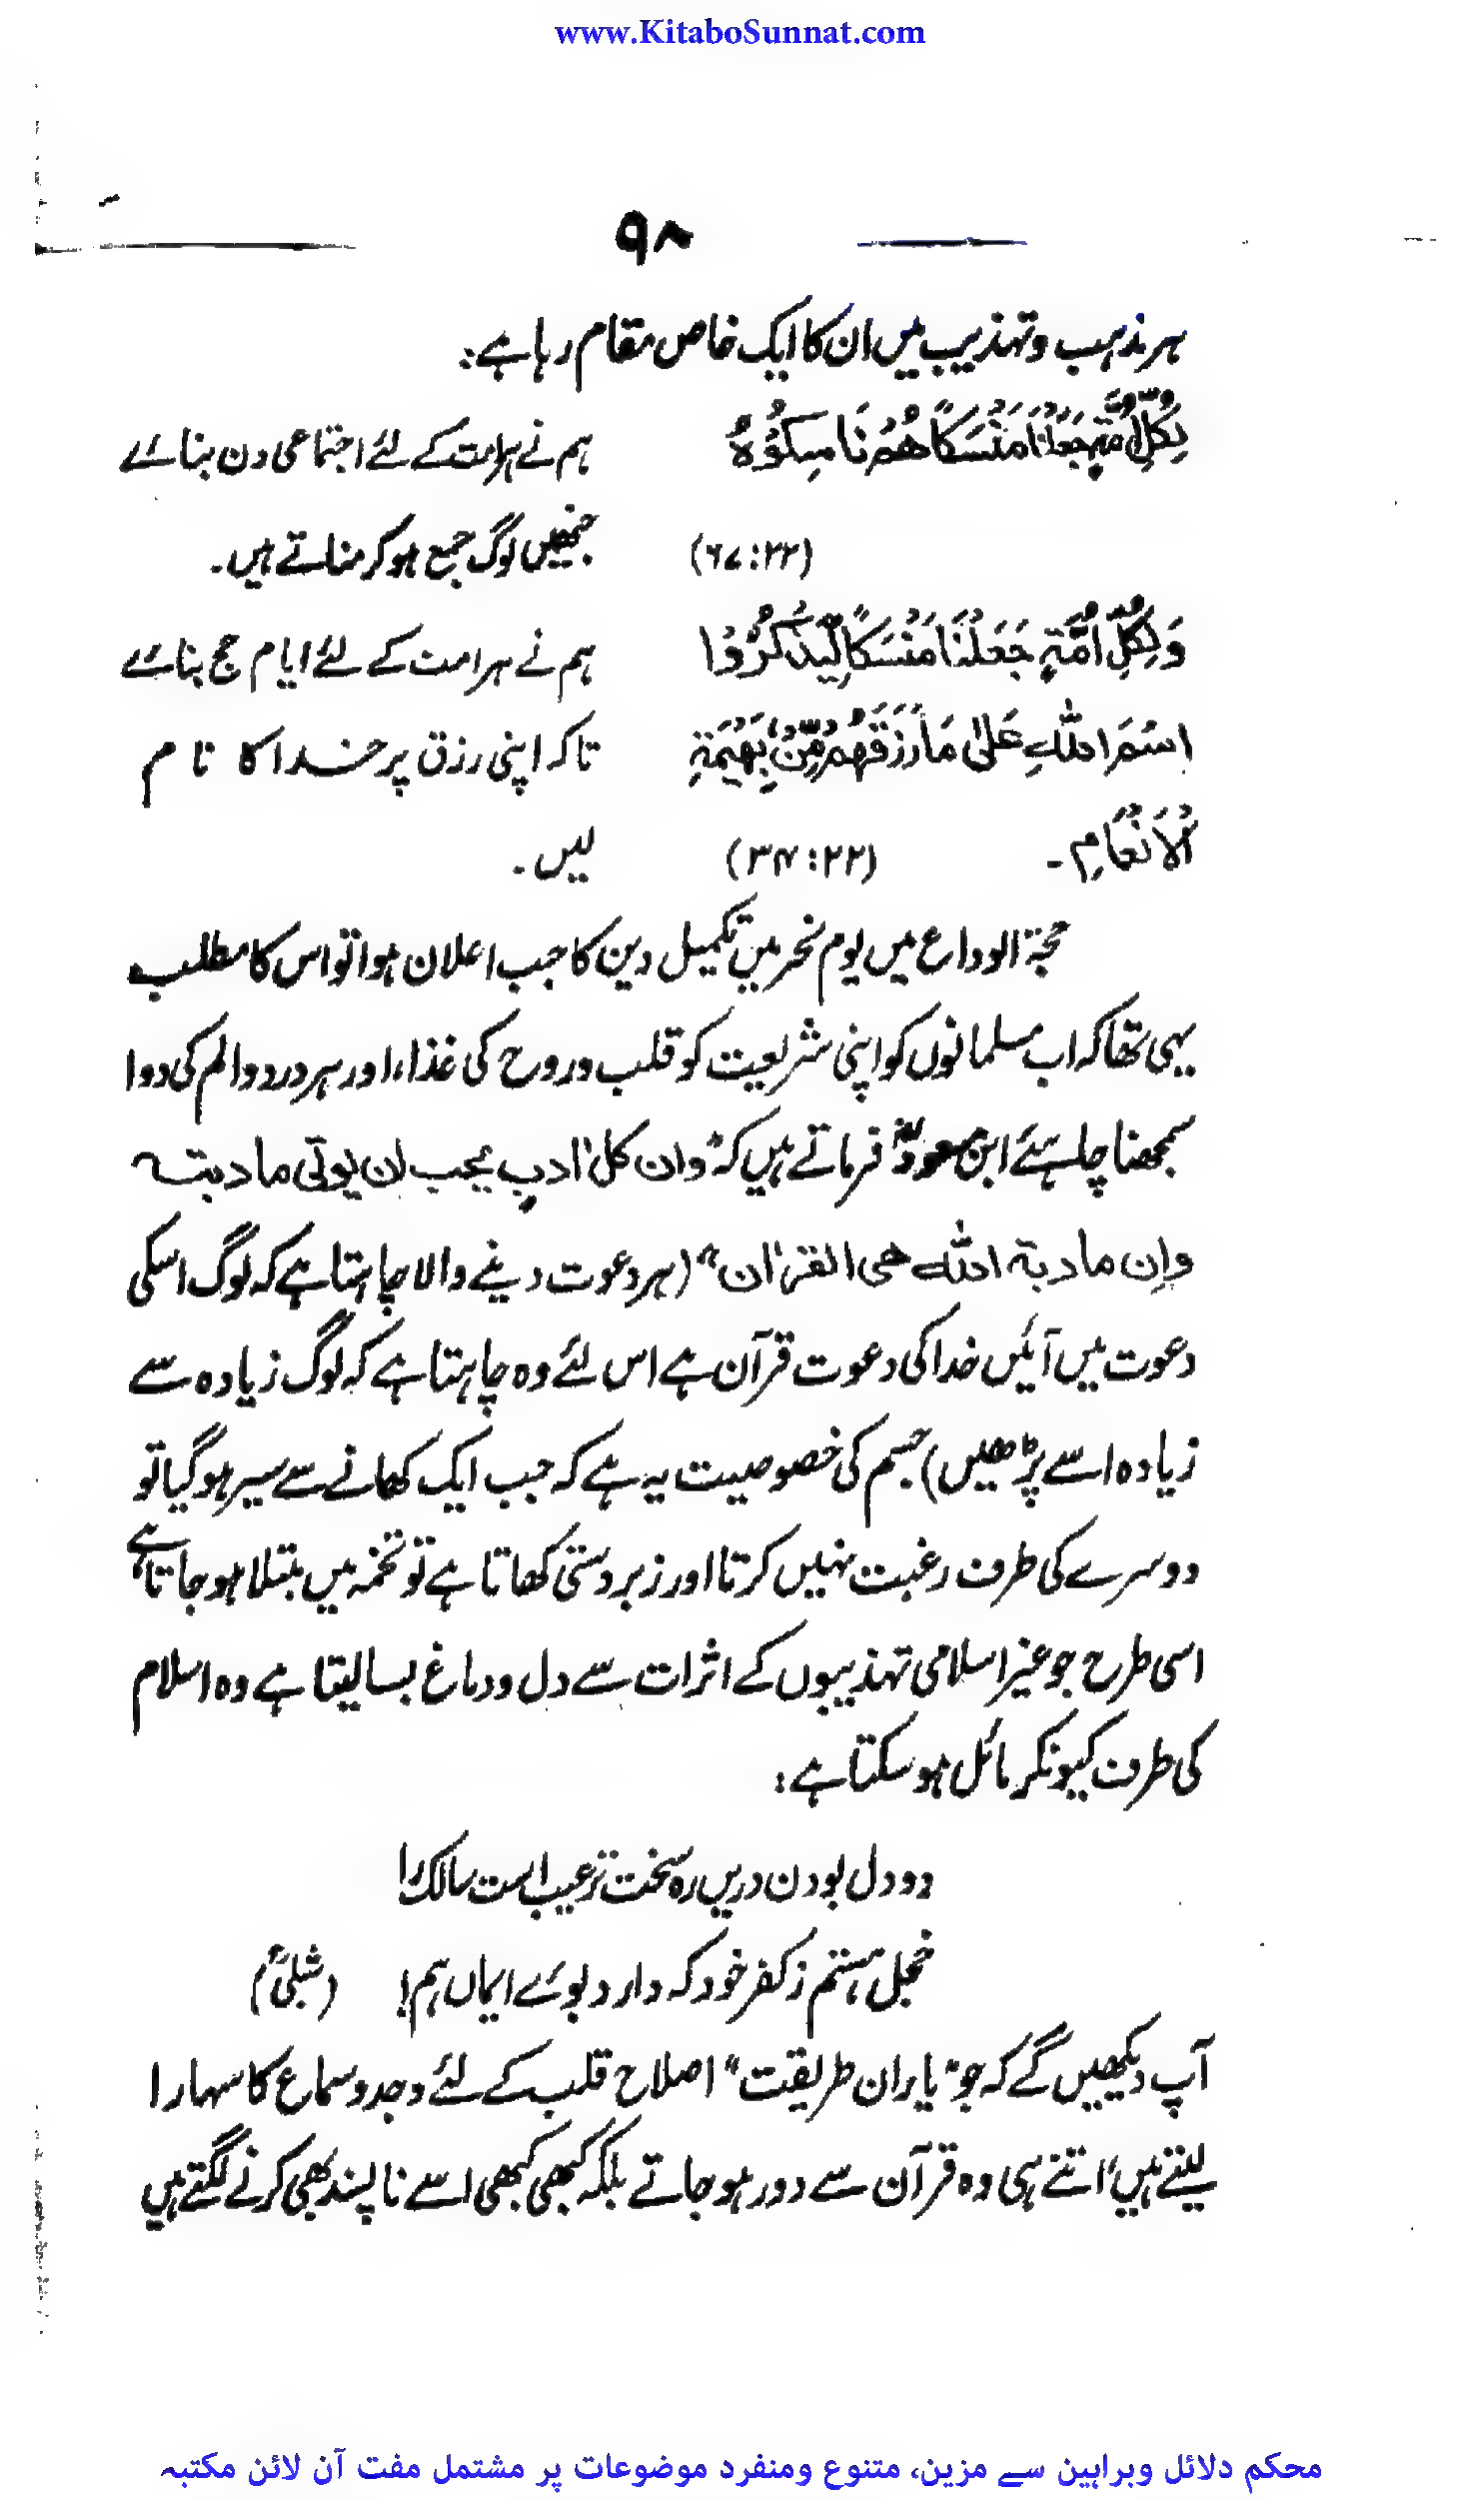 www.KitaboSunnat.com
۹۸
ہر مذہب و تہذیب میں ان کا ایک خاص مقام رہا ہے:
لِكُلِّ اُمَّةٍ جَعَلْنَا مَنْسَكًا هُمْ نَاسِكُوْهُ ہم نے ہر امت کے لئے اجتماعی دن بنائے
(۲۲:۶۷) جنھیں لوگ جمع ہو کر مناتے ہیں۔
وَلِكُلِّ اُمَّةٍ جَعَلْنَا مَنْسَكًا لِّيَذْكُرُوْا ہم نے ہر امت کے لئے ایام حج بنائے
اسْمَ اللّٰهِ عَلٰى مَا رَزَقَهُمْ مِّنْۢ بَهِيْمَةِ تاکہ اپنی رزق پر خدا کا نام
الْاَنْعَامِ۔ (۲۲:۳۴) لیں۔
حجۃ الوداع میں یوم نحر میں تکمیل دین کا جب اعلان ہوا تو اس کا مطلب
یہی تھا کہ اب مسلمانوں کو اپنی شریعت کو قلب و روح کی غذاء اور ہر درد و الم کی دوا
سمجھنا چاہئے ابن مسعودؓ فرماتے ہیں کہ "وان کل اٰدب یحب ان یوتی مادبتہ
وإن مادبۃ اللہ ھی القراٰن" (ہر دعوت دینے والا چاہتا ہے کہ لوگ اسکی
دعوت میں آئیں خدا کی دعوت قرآن ہے اس لئے وہ چاہتا ہے کہ لوگ زیادہ سے
زیادہ اسے پڑھیں) جسم کی خصوصیت یہ ہے کہ جب ایک کھانے سے سیر ہو گیا تو
دوسرے کی طرف رغبت نہیں کرتا اور زبردستی کھاتا ہے تو تخمہ میں مبتلا ہو جاتا ہے
اسی طرح جو غیر اسلامی تہذیبوں کے اثرات سے دل و دماغ بسا لیتا ہے وہ اسلام
کی طرف کیونکر مائل ہو سکتا ہے:
دو دل بودن دریں رہ سخت تر عیب است سالک را
خجل ہستم ز کفر خود کہ دارد بوئے ایماں ہم! (شبلیؒ)
آپ دیکھیں گے کہ جو "یاران طریقت" اصلاح قلب کے لئے وجد و سماع کا سہارا
لیتے ہیں" اتنے ہی وہ قرآن سے دور ہو جاتے بلکہ کبھی کبھی اسے ناپسند بھی کرنے لگتے ہیں
محکم دلائل وبراہین سے مزین، متنوع ومنفرد موضوعات پر مشتمل مفت آن لائن مکتبہ